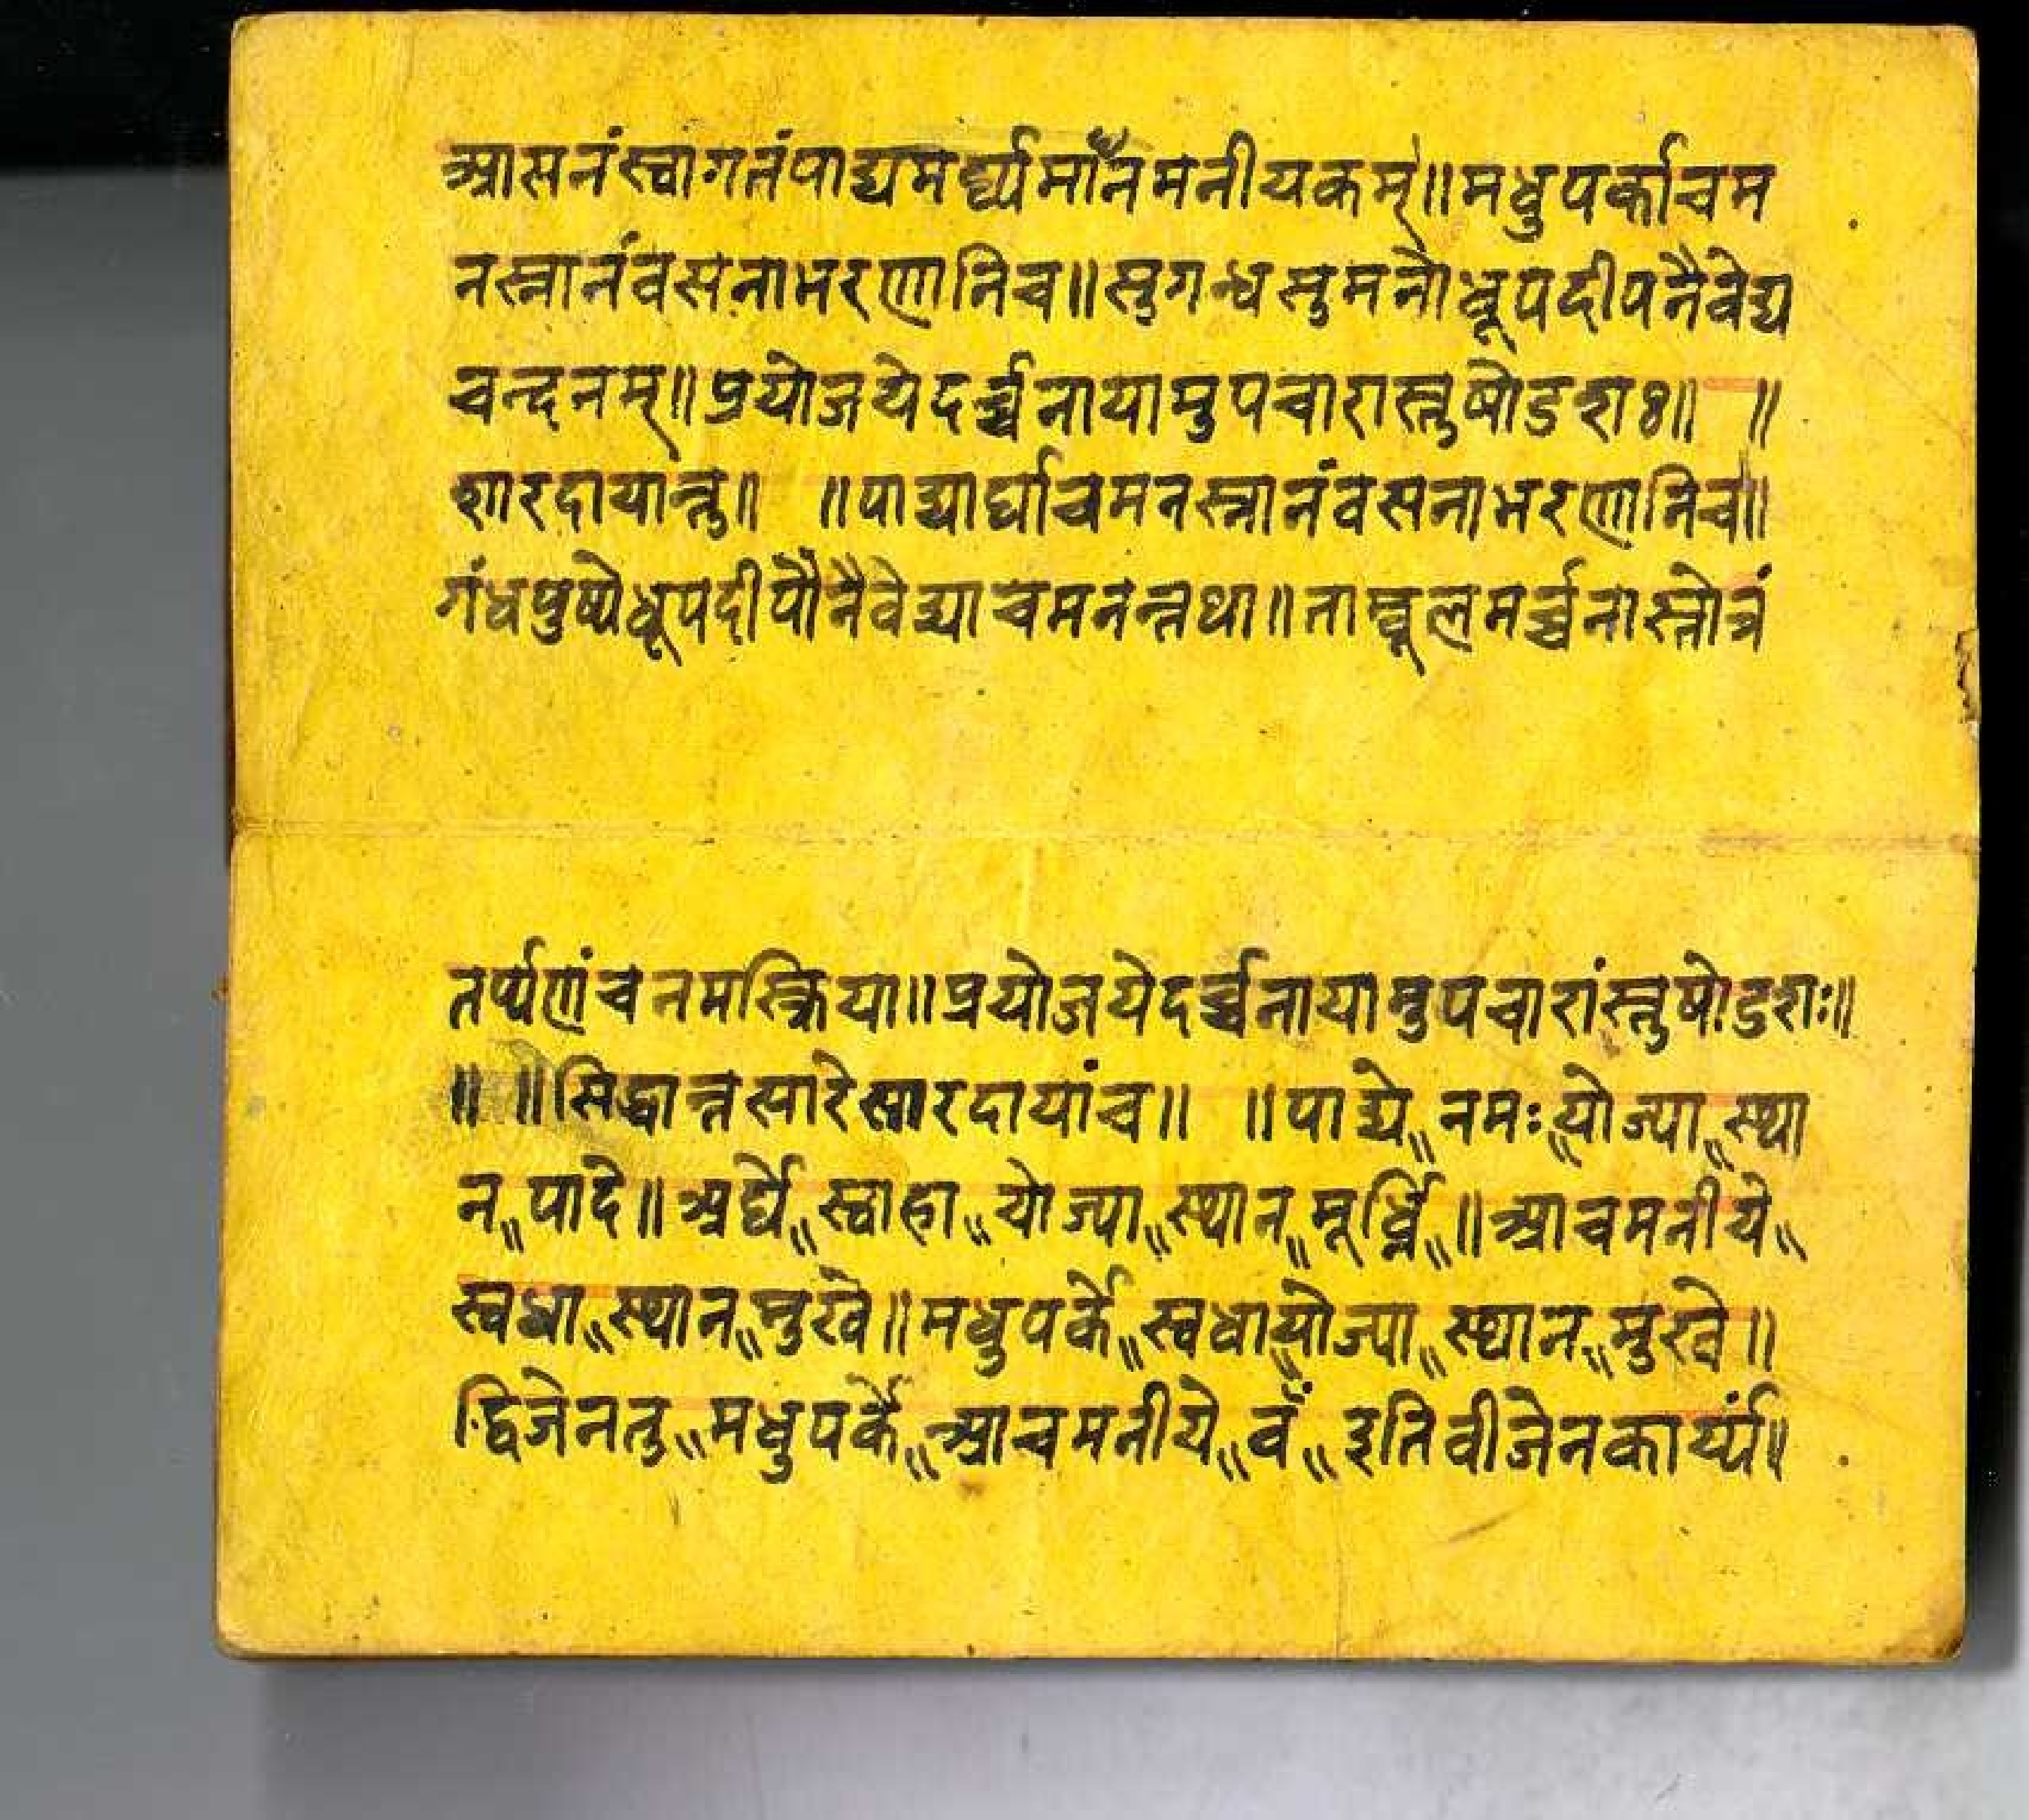 आसनंस्वागतंपाद्यमर्घ्यमाँनमनीयकम्॥मधुपर्काचम
नस्नानंवसनाभरणानिच॥सुगन्धसुमनोधूपदीपनैवेद्य
चन्दनम्॥प्रयोजयेदर्च्चनायामुपचारास्तुषोडशः॥ ॥
शारदायान्तु॥ ॥पाद्यार्घाचमनस्नानंवसनाभरणानिच॥
गंधपुष्पेधूपदीपौनैवेद्याचमनन्तथा॥ताम्बूलमर्च्चनास्तोत्रं
तर्प्पणंचनमस्क्रिया॥प्रयोजयेदर्च्चनायामुपचारांस्तुषोडशः॥
॥ ॥सिद्धान्तसारेसारदायांच॥ ॥पाद्ये॥नमः॥योज्या॥स्था
न॥पादे॥अर्घ्ये॥स्वाहा॥योज्या॥स्थान॥मूर्ध्नि॥॥आचमनीये॥
स्वधा॥स्थान॥मुखे॥मधुपर्के॥स्वधा॥योज्या॥स्थान॥मुखे॥
द्विजेनतु॥मधुपर्के॥आचमनीये॥वँ॥इतिवीजेनकार्य्यं॥